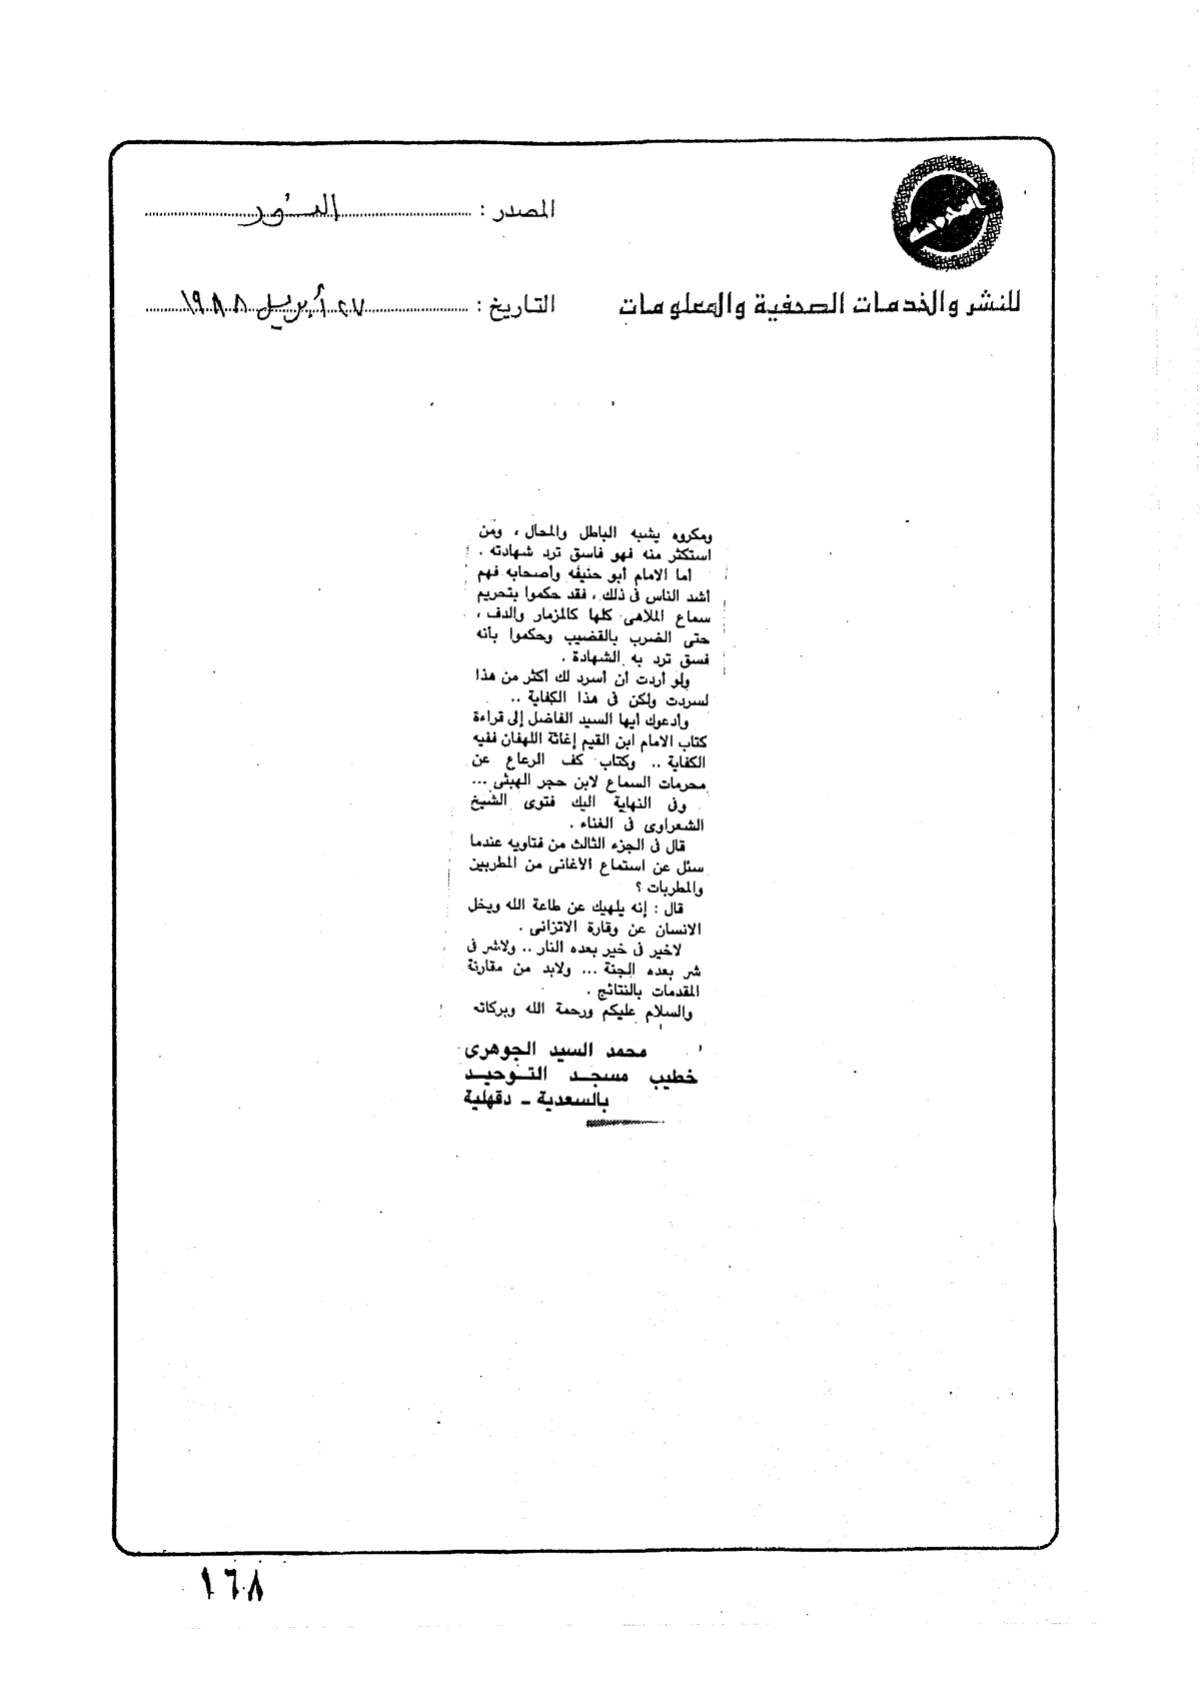 المصدر : النور
للنشر والخدمات الصحفية والمعلومات
التاريخ : ٢٧ أبريل ١٩٨٨
ومكروه يشبه الباطل والمحال ، ومن
استكثر منه فهو فاسق ترد شهادته .
أما الامام أبو حنيفه وأصحابه فهم
أشد الناس فى ذلك ، فقد حكموا بتحريم
سماع الملاهى كلها كالمزمار والدف ،
حتى الضرب بالقضيب وحكموا بأنه
فسق ترد به الشهادة .
ولو أردت أن أسرد لك أكثر من هذا
لسردت ولكن فى هذا الكفاية ..
وأدعوك أيها السيد الفاضل إلى قراءة
كتاب الامام ابن القيم إغاثة اللهفان ففيه
الكفاية .. وكتاب كف الرعاع عن
محرمات السماع لابن حجر الهيثى ...
وفى النهاية اليك فتوى الشيخ
الشعراوى فى الغناء .
قال فى الجزء الثالث من فتاويه عندما
سئل عن استماع الأغانى من المطربين
والمطربات ؟
قال : إنه يلهيك عن طاعة الله ويخل
الانسان عن وقارة الاتزانى .
لاخير فى خير بعده النار .. ولاشر فى
شر بعده الجنة ... ولابد من مقارنة
المقدمات بالنتائج .
والسلام عليكم ورحمة الله وبركاته
محمد السيد الجوهرى
خطيب مسجد التوحيد
بالسعدية ـ دقهلية
١٦٨